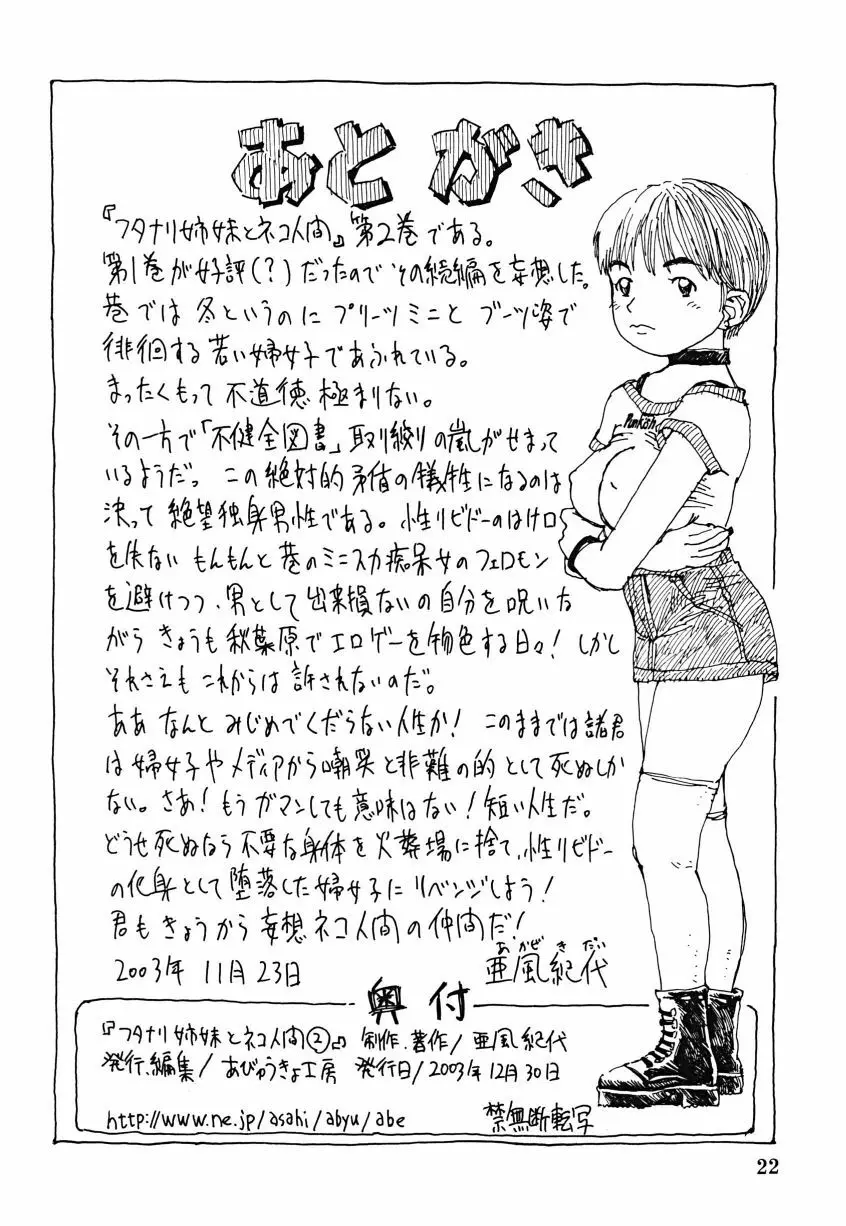 あとがき
『フタナリ姉妹とネコ人間』第2巻である。
第1巻が好評(?)だったのでその続編を妄想した。
巷では冬というのにプリーツミニとブーツ姿で
徘徊する若い婦女子であふれている。
まったくもって不道徳極まりない。
その一方で「不健全図書」取り絞りの嵐がせまって
いるようだ。この絶対的矛盾の犠牲になるのは
決って絶望独身男性である。性リビドーのはけ口
を失ない もんもんと巷のミニスカ痴呆女のフェロモン
を避けつつ、男として出来損ないの自分を呪いな
がら きょうも秋葉原でエロゲーを物色する日々! しかし
それさえもこれからは許されないのだ。
ああ なんと みじめでくだらない人生か! このままでは諸君
は婦女子やメディアから嘲笑と非難の的として死ぬしか
ない。さあ! もうガマンしても意味はない! 短い人生だ。
どうせ死ぬなら不要な身体を火葬場に捨て、性リビドー
の化身として堕落した婦女子にリベンジしよう!
君もきょうから妄想ネコ人間の仲間だ!
2003年 11月23日
あかぜきだい
亜風紀代
Punkish
奥付
『フタナリ姉妹とネコ人間②』 制作、著作/ 亜風紀代
発行、編集/ あびゅうきょ工房 発行日/2003年12月30日
http://www.ne.jp/asahi/abyu/abe 禁無断転写
22